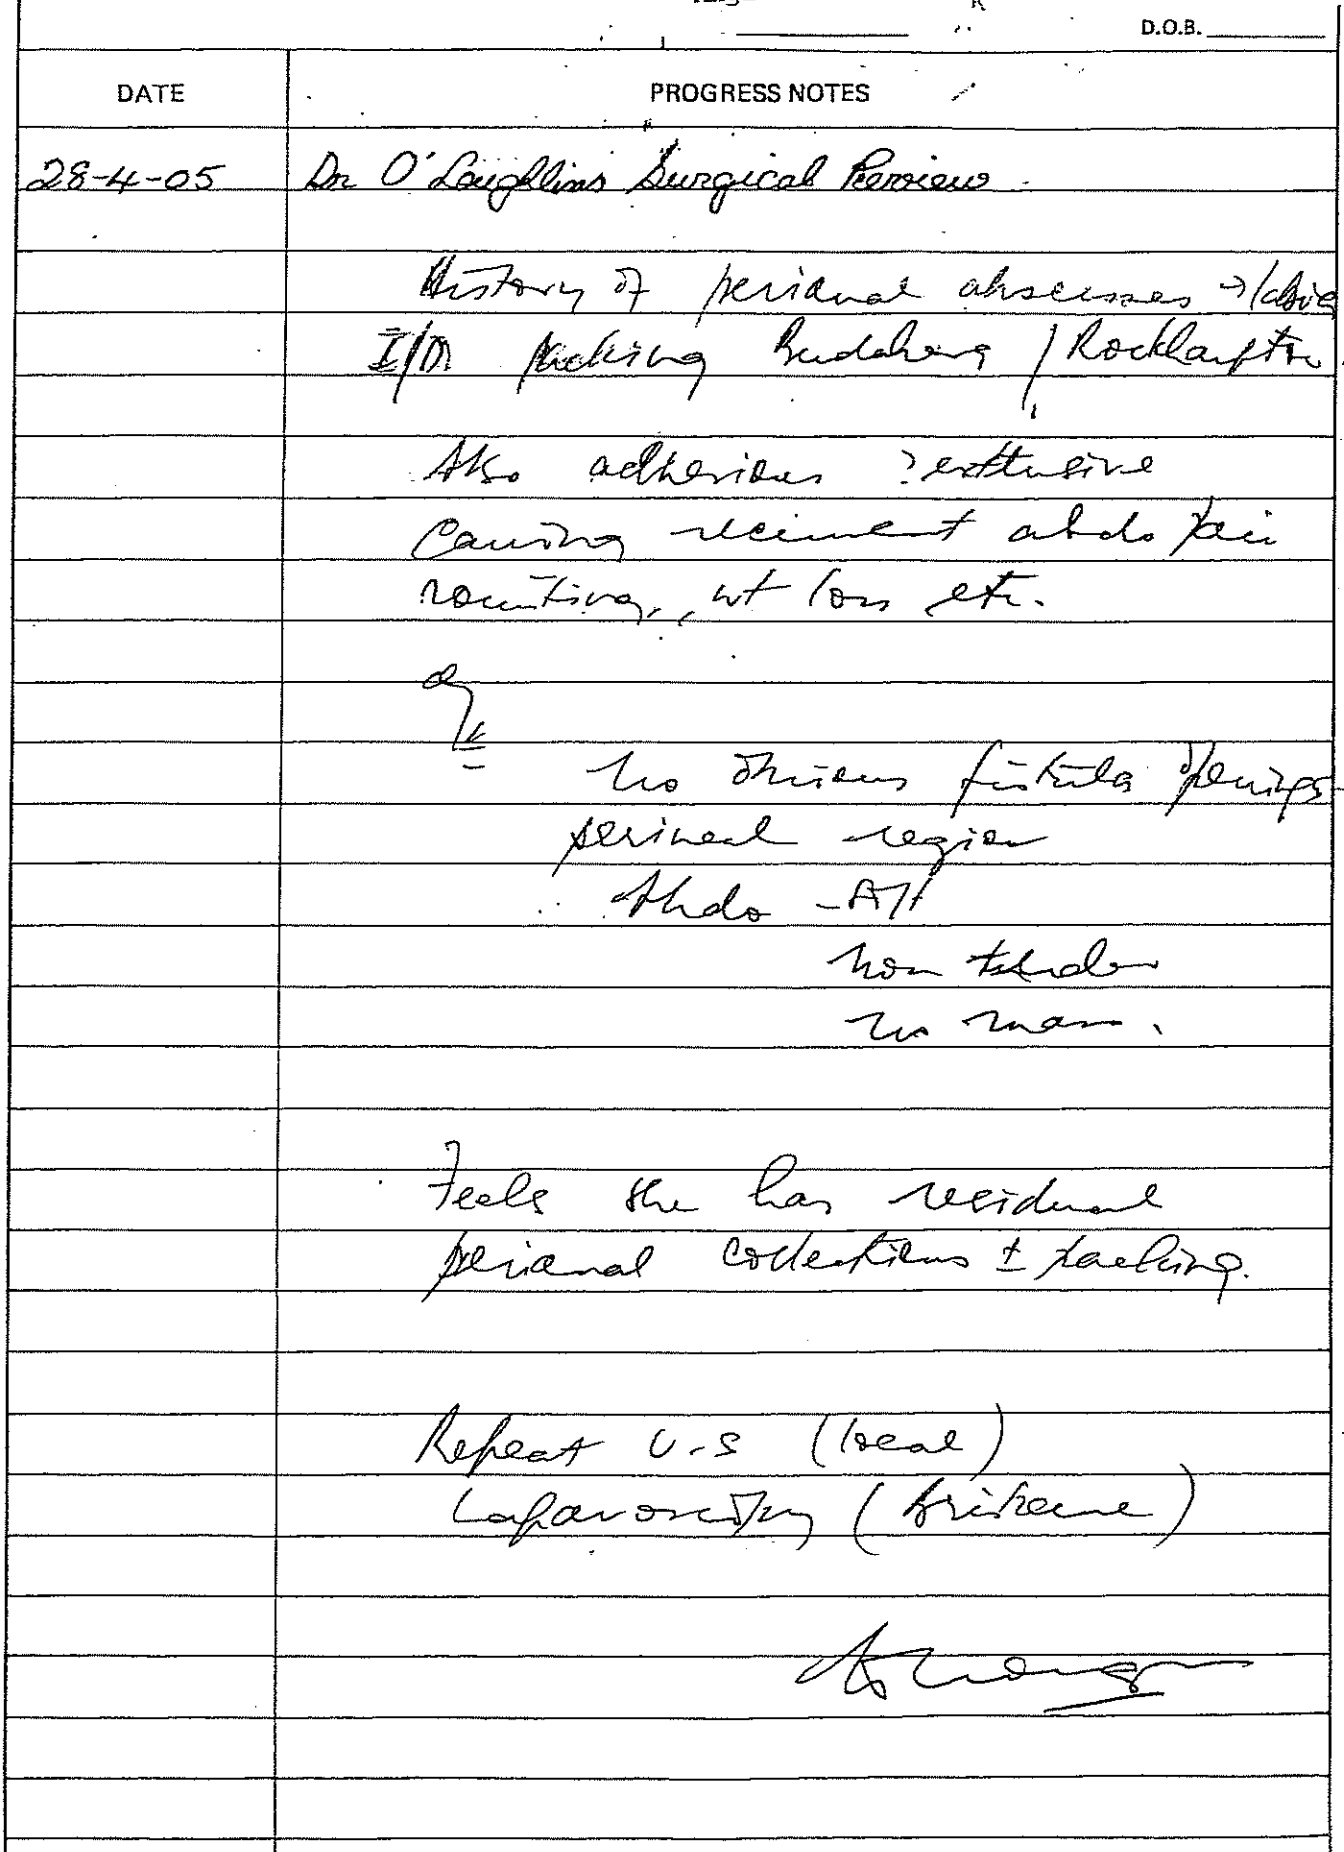 D.O.B.
DATE PROGRESS NOTES
28-4-05 Dr O'Loughlins Surgical Review
History of perianal abscesses →
I/D packing Bundaberg / Rockhampton
Also adhesions ? extensive
causing recurrent abdo pain
vomiting, wt loss etc.
O/E
No obvious fistula openings
perineal region
Abdo -
non tender
no mass.
Feels she has residual
perianal collections ± packing.
Repeat U.S (local)
Laparoscopy (Brisbane)